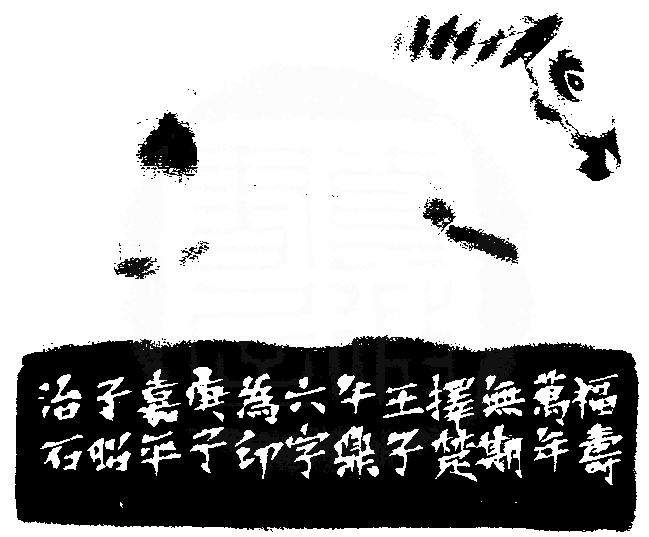 福壽
萬年
無期
擇楚
王子
午鼎
六字
為印
庚子
嘉平
子昭
治石